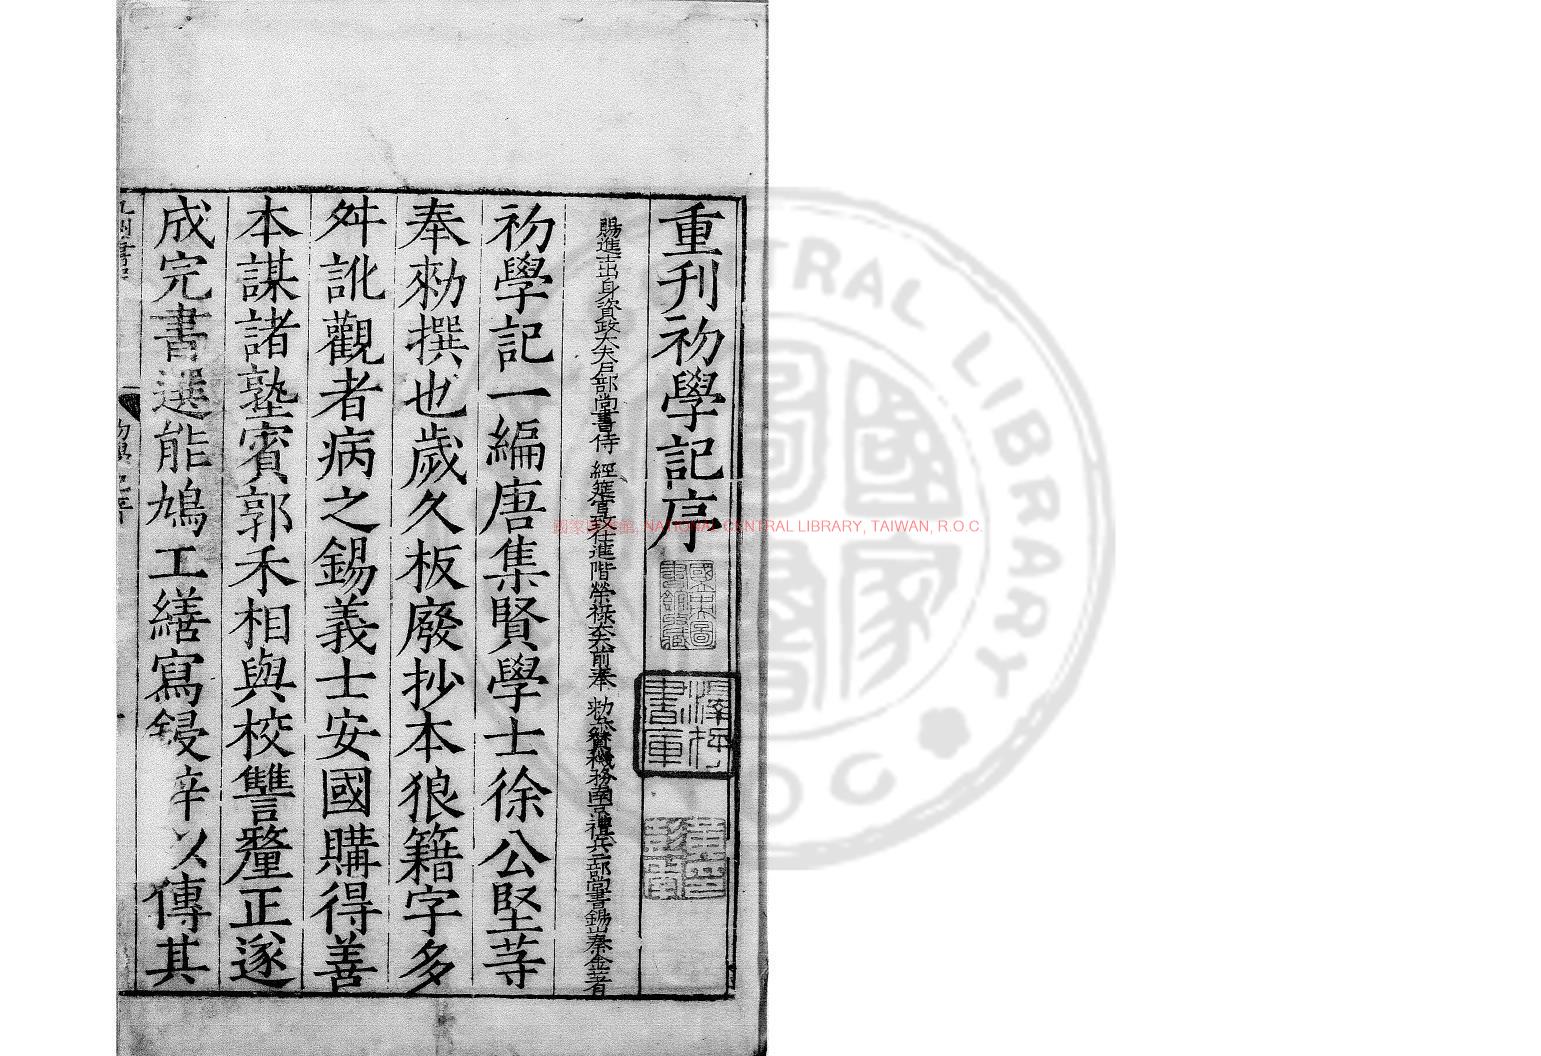 重刋初學記序
賜進士出身資政大夫戶部尚書侍 經筵直致仕進階榮祿大夫前奉 勑叅贊機務南京禮兵二部尚書錫山秦金著
初學記一編唐集賢學士徐公堅䓁
奉勑撰也歲久板廢抄本狼籍字多
舛訛觀者病之錫義士安國購得善
本謀諸塾賓郭禾相與校讐釐正遂
成完書選能鳩工繕寫鋟梓以傳其
國家圖書館, NATIONAL CENTRAL LIBRARY, TAIWAN, R.O.C.